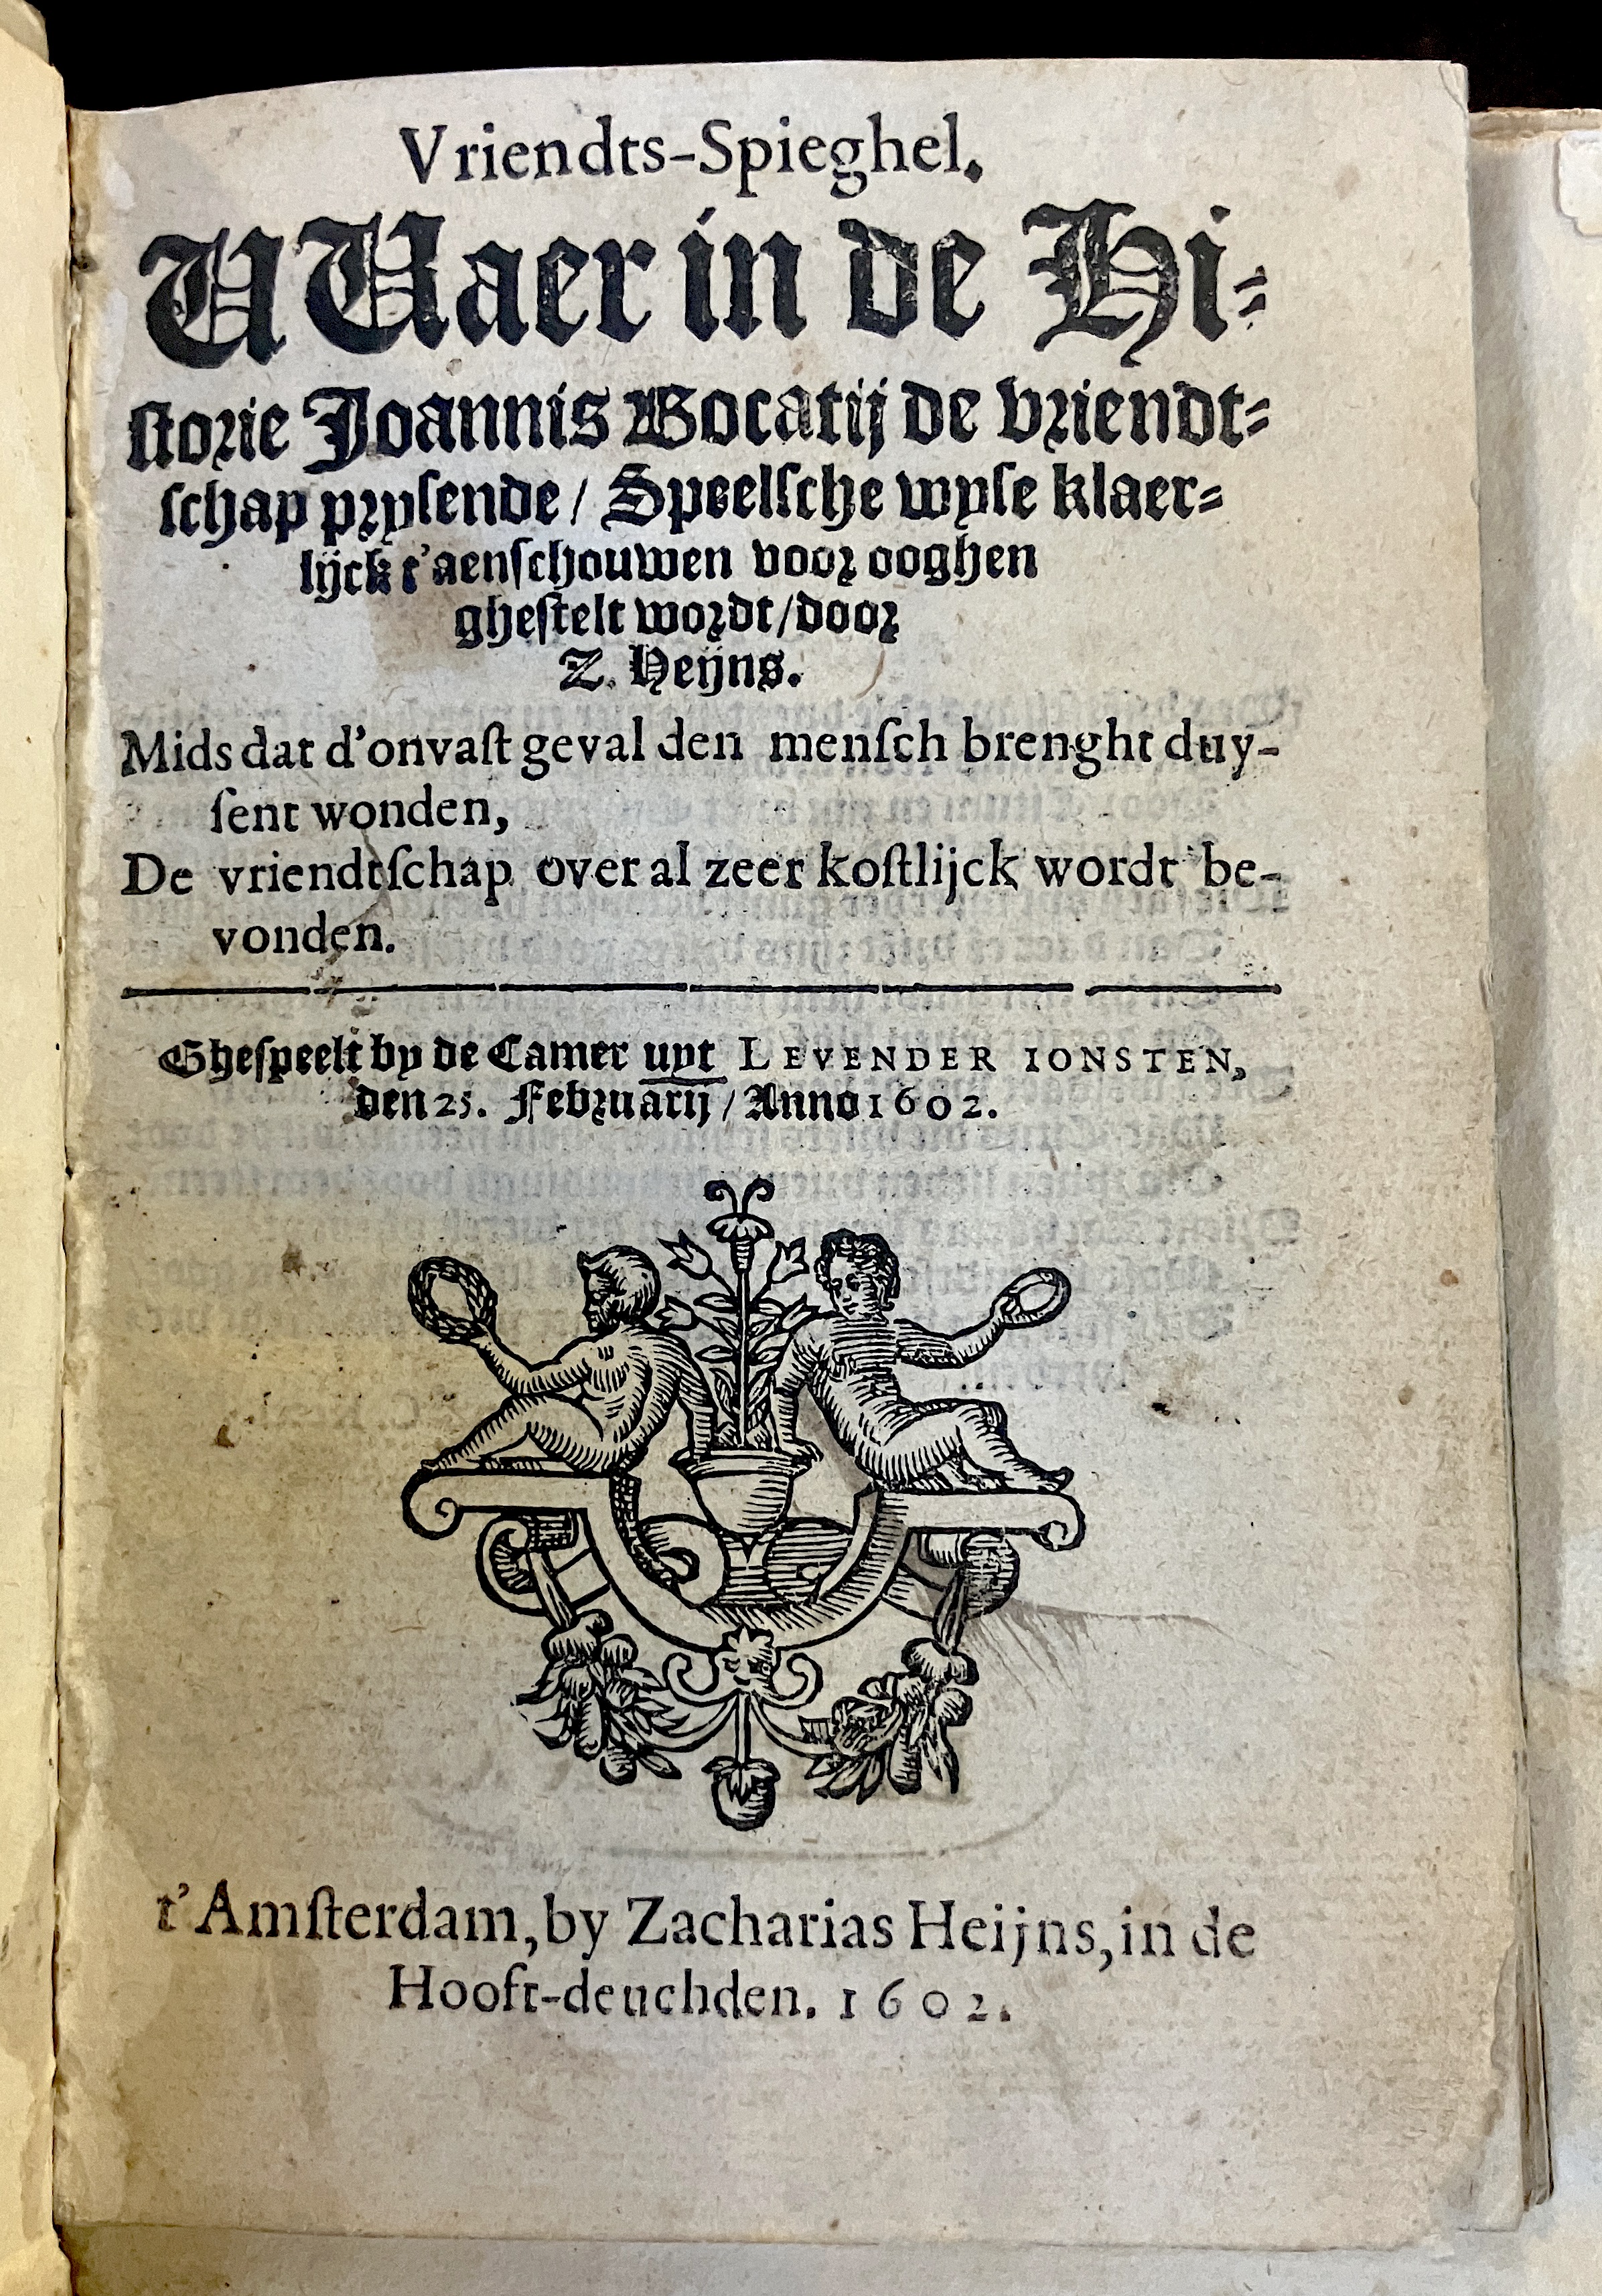 Vriendts-Spieghel.
UUaer in de Hi-
ſtorie Joannis Bocatij de vriendt-
ſchap prysende / Speelſche wyſe klaer-
lijck t'aenſchouwen voor ooghen
gheſtelt wordt / door
Z. Heijns.
Mids dat d'onvaſt geval den menſch brenght duy-
ſent wonden,
De vriendtſchap over al zeer koſtlijck wordt be-
vonden.
Gheſpeelt by de Camer uyt LEVENDER IONSTEN,
den 25. Februarij / Anno 1602.
t'Amſterdam, by Zacharias Heijns, in de
Hooft-deuchden. 1602.